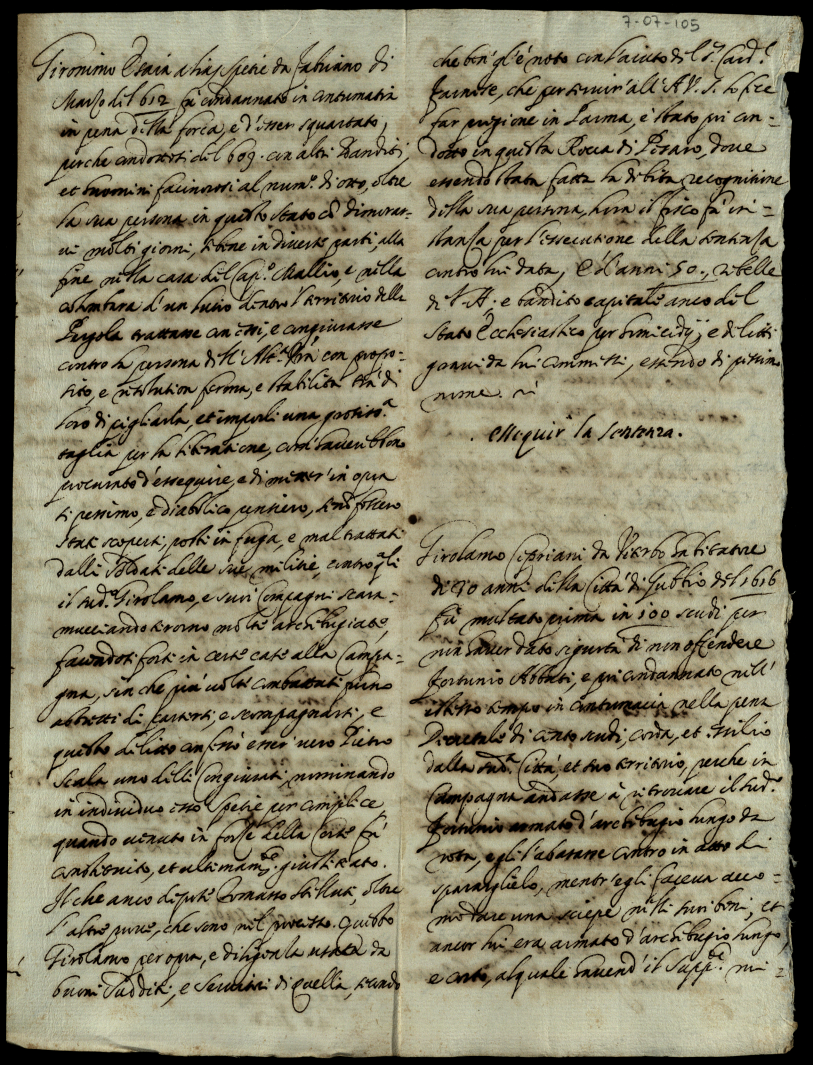 7-07-105
Gironimo Esaia alias Spetie da Fabriano di
Marzo del 612 fù condannato in contumatia
in pena della forca, e d'esser squartato,
perche condottosi del 609. con altri Banditi,
et huomini facinorosi al num.º di otto, oltre
la sua persona in questo stato cõ dimorar-
vi molti giorni, sebene in diverse parti, alla
fine nella casa del Cap.º Mallio, e nella
colombara d'un suo dentro 'l territorio della
Pergola trattasse con essi, e congiurasse
contro la persona di V. Alt.ª Ser.ma con propo-
sito, e risolution ferma, e stabilita trà di
loro di pigliarla, et imporli una grossis.ª
taglia per la liberatione, come haverebbono
procurato d'essequire, e di metter' in opra
sì pessimo, e diabolico pensiero, se nõ fossero
stati scoperti, posti in fuga, e mal trattati
dalli Soldati delle sue militie, contro q.li
il sud.º Girolamo, e suoi Compagni scara-
mucciando tirorno molte archibugiate,
facendosi forti in certe case alla Campa-
gna, sin che più volte combattuti furno
astretti di partirsi, e scompagnarsi, e
questo delitto confessò esser vero Pietro
Scala uno delli Congiurati, nominando
in individuo esso Spetie per complice
quando venuto in forze della Corte fù
constituito, et ultimam.te giustitiato.
Il che anco depose Tomasso Stelluti, oltre
l'altre prove, che sono nel processo. Questo
Girolamo per opra, e diligenza usata da
buoni Sudditi, e Servitori di Quella, secondo
che ben' gl'è noto con l'aiuto del S.r Card.l
Farnese, che per servir' all'A. V. S. lo fece
far prigione in Parma, è stato poi con-
dotto in questa Rocca di Pesaro, dove
essendo stata fatta la debita recognitione
della sua persona, hora il fisco fà in-
stanza per l'essecutione della sentenza
contro lui data, È d'anni 50., ribelle
di V. A. e bandito capitale anco del
stato Ecclesiastico per homicidij, e delitti
gravi da lui commessi, essendo di pessimo
nome.
. essequir la sentenza.
Girolamo Cipriani da Viterbo habitatore
di 20 anni della Città di Gubbio del 1616
fù multato prima in 100 scudi per
non haver dato sigurtà di non offendere
Fortunio Abbati, e poi condannato nell'
istesso tempo in contumacia nella pena
Decretale di cento scudi, corda, et essilio
dalla sud.ª Città, et suo territorio, perche in
Campagna andasse à ritrovare il sud.º
Fortunio armato d'archibugio lungo da
rota, e gli l'abassasse contro in atto di
spararglielo, mentr'egli faceva acco-
modare una siepe nelli suoi beni, et
ancor lui era armato d'archibugio lungo,
e corto, al quale havend' il Supp.te mi-